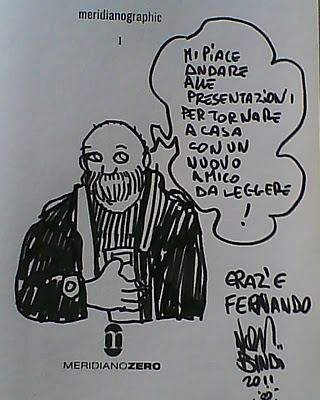 meridianographic
1
MI PIACE
ANDARE
ALLE
PRESENTAZIONI
PER TORNARE
A CASA
CON UN
NUOVO
AMICO
DA LEGGERE
!
GRAZIE
FERNANDO
MERIDIANOZERO
2011